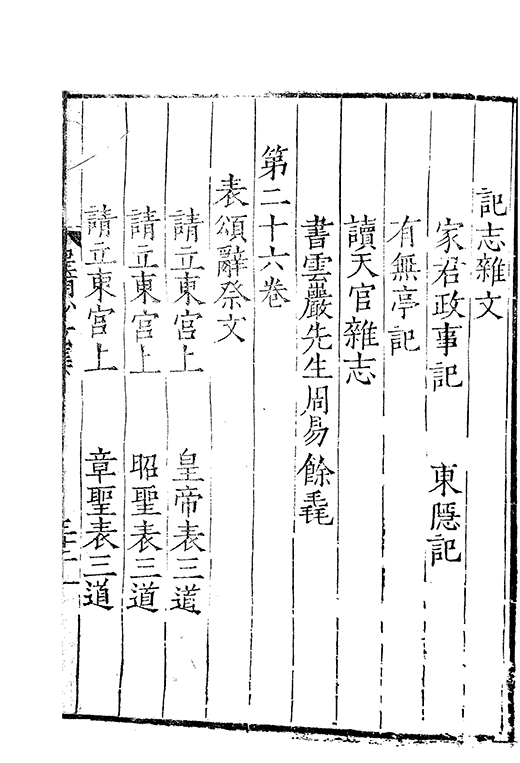 記志雜文
家君政事記　東隱記
有無亭記
讀天官雜志
書雲巖先生周易餘毳
第二十六卷
表頌辭祭文
請立東宮上　皇帝表三道
請立東宮上　昭聖表三道
請立東宮上　章聖表三道